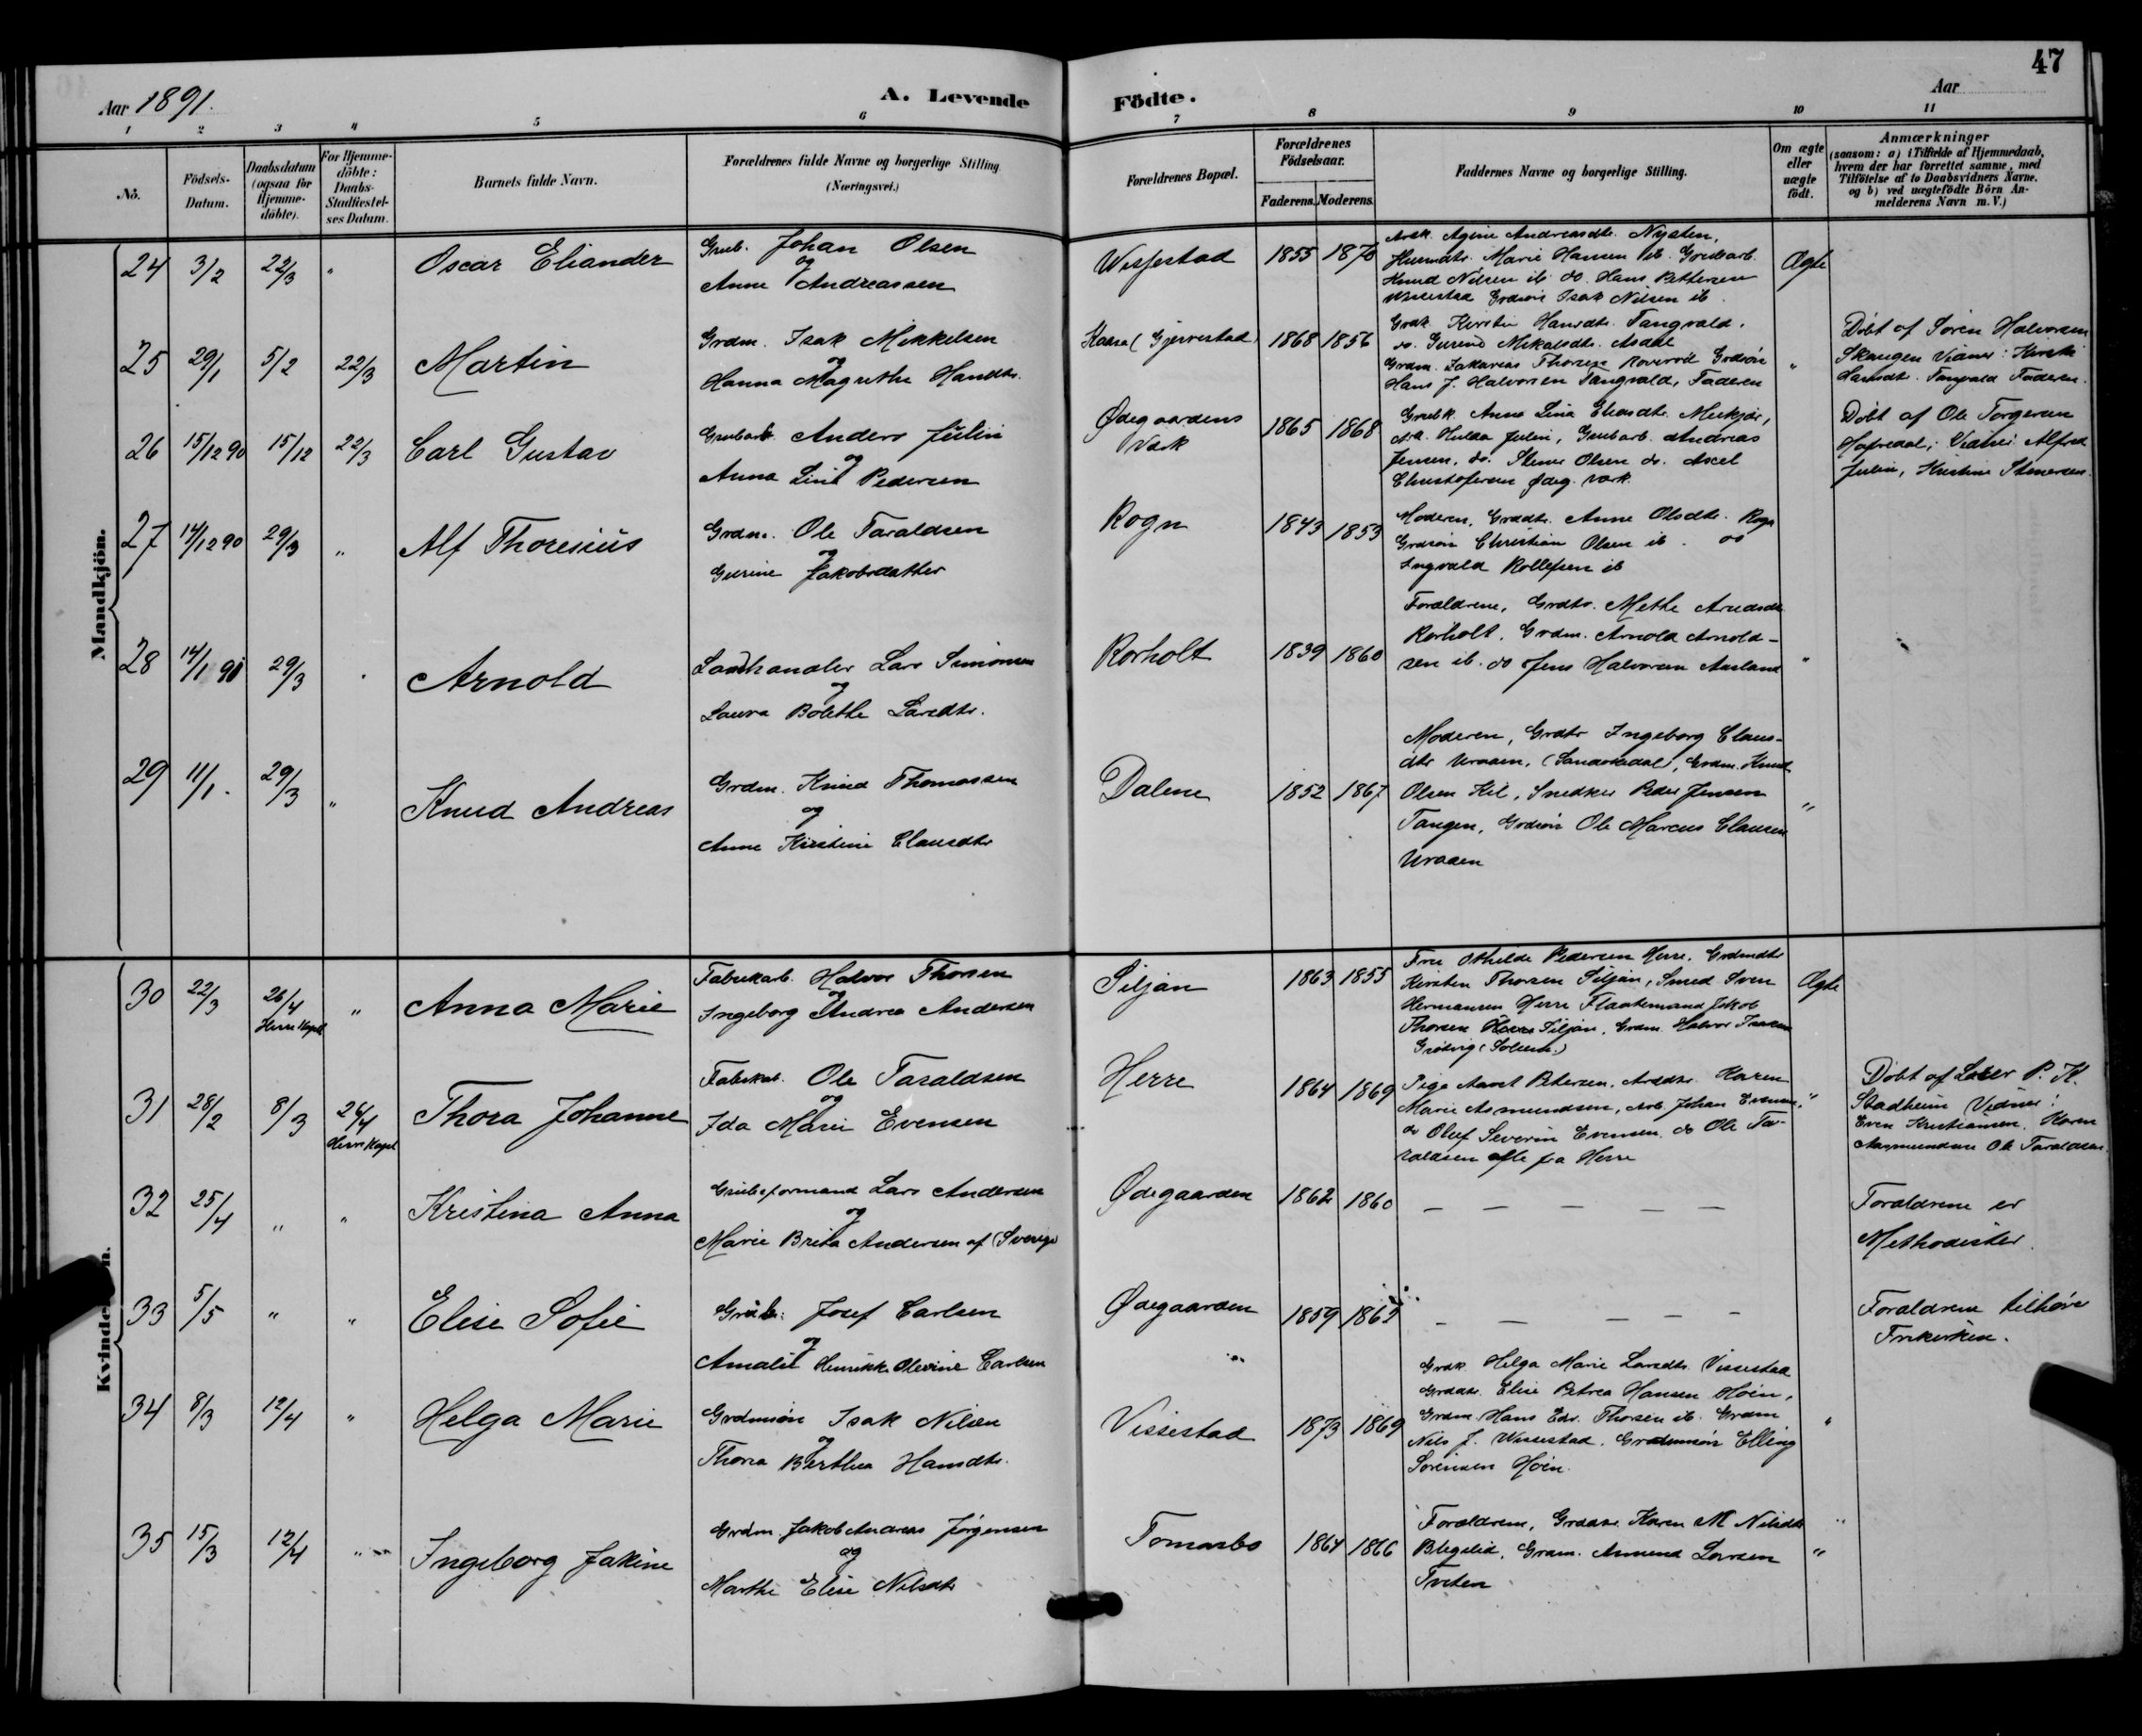 47
Aar 1891.
A. Levende Födte.
Aar
1 2 3 4 5 6 7 8 9 10 11
No.
Födsels-Datum.
Daabsdatum (ogsaa for Hjemme-döbte).
For Hjemme-döbte: Daabs-Stadfæstel-ses Datum.
Barnets fulde Navn.
Forældrenes fulde Navne og borgerlige Stilling. (Næringsvei.)
Forældrenes Bopæl.
Forældrenes Födselsaar.
Faderens. Moderens.
Faddernes Navne og borgerlige Stilling.
Om ægte eller uægte födt.
Anmærkninger
(saasom: a) i Tilfælde af Hjemmedaab,
hvem der har forrettet samme, med
Tilföielse af to Daabsvidners Navne.
og b) ved uægtefödte Börn An-
melderens Navn m. V.)
Mandkjön.
24 3/2 22/3 " Oscar Eliander
Grub. Johan Olsen
og
Anne Andreassen
Wissestad 1855 1870
Arbk. Agine Andreasdtr. Nysten,
Husmdtr. Marie Hansen ib. Grubarb.
Knud Nilsen ib. do. Hans Pettersen
Wissestad Grdsøn Isak Nilsen ib.
Ægte
25 29/1 5/2 22/3 Martin
Grdm. Isak Mikkelsen
og
Hanna Magrethe Hansdtr.
Kaasa (Gjerrestad) 1868 1856
Grdk. Kirstin Hansdtr. Tangvald.
do. Gurine Mikalsdtr. Asdal
Grdm. Zakarias Thorsen Grdsøn
Hans J. Halvorsen Tangvald, Faderen
"
Döbt af Sören Halvorsen
Skaugen Vidner: Kirstin
Hansdt. Tangvald Faderen.
26 15/12 90 15/12 22/3 Carl Gustav
Grubarb. Anders Julin
og
Anna Lina Pedersen
Ødegaardens
Værk
1865 1868
Grubk. Anna Lina Eliasdtr.
Ark. Hulda Julin, Grubarb. Andreas
Jensen, do. Stener Olsen do. Axel
Christofersen Ødeg. værk.
Döbt af Ole Torgersen
Hafredal; Vidner: Alfred
Julin, Kristine Stenersen.
27 14/12 90 29/3 " Alf Thoresius
Grdm. Ole Taraldsen
og
Gurine Jakobsdatter
Rogn 1843 1853
Moderen, Grddtr. Anne Olsdtr. Rogn
Grdsøn Christian Olsen ib. do
Ingvald Rollefsen ib
28 14/1 91 29/3 " Arnold
Landhandler Lars Simonsen
og
Laura Bolette Larsdtr.
Rørholt 1839 1860
Forældrene, Grdtr. Methe
Rørholt. Grdm. Arnold Arnold-
sen ib. do Jens Halvorsen Aasland
"
29 11/1. 29/3 " Knud Andreas
Grdm. Knud Thomassen
og
Anne Kirstine Clausdtr
Dalene 1852 1867
Moderen, Grdtr Ingeborg Claus-
dtr Uraaen, (Sandøkedal), Grdm. Knud
Olsen Kil, Snedker Peder Jensen
Tangen, Grdsøn Ole Marcus Clausen
Uraaen
"
Kvindekjön.
30 22/3 26/4 Herre Kapel " Anna Marie
Fabrikarb. Halvor Thorsen
og
Ingeborg Andrea Andersen
Siljan 1863 1855
Fru Othilde Pedersen Herre, Grdmdtr
Kirsten Thorsen Siljan, Smed Sven
Hermansen Herre Jakob
Thorsen Siljan, Grdm. Halvor Isaksen
Grøtvig (Solum.)
Ægte
31 28/2 8/3 26/4 Herre Kapel Thora Johanne
Fabrikarb. Ole Taraldsen
og
Ida Marie Evensen
Herre 1864 1869
Pige Petersen, Arbdtr. Karen
Marie Asmundsen, Arb. Johan Evensen,
do Oluf Severin Evensen, do Ole Ta-
raldsen alle fra Herre
"
Döbt af Lærer P. K.
Stadheim Vidner:
Even Kristiansen, Karen
Aasmundsen Ole Taraldsen
32 25/4 " " Kristina Anna
Grubeformand Lars Andersen
og
Marie Brita Andersen af (Sverige)
Ødegaarden 1862 1860 — — — — — —
Forældrene er
Methodister.
33 5/5 " " Elise Sofie
Grub. Josef Carlsen
og
Amalie Henrikke Olevine Carlsen
Ødegaarden 1859 — — — — —
Forældrene tilhöre
Frikirken.
34 8/3 12/4 " Helga Marie
Grdmsøn Isak Nilsen
og
Thora Berthea Hansdtr.
Vissestad 1873 1869
Grdk. Helga Marie Larsdtr. Vissestad
Grddtr. Elise Petrea Hansen Høen,
Grdm. Hans Edv. Thorsen ib. Grdm
Nils J. Wissestad. Grdmsøn Elling
Sørensen Høen.
"
35 15/3 12/4 " Ingeborg Jakine
Grdm. Jakob Andreas Jørgensen
og
Marthe Elise Nilsdtr
Tomasbo 1864 1866
Forældrene, Grddtr. Karen M Nilsdtr
Grdm. Amund Larsen
Tveten
"